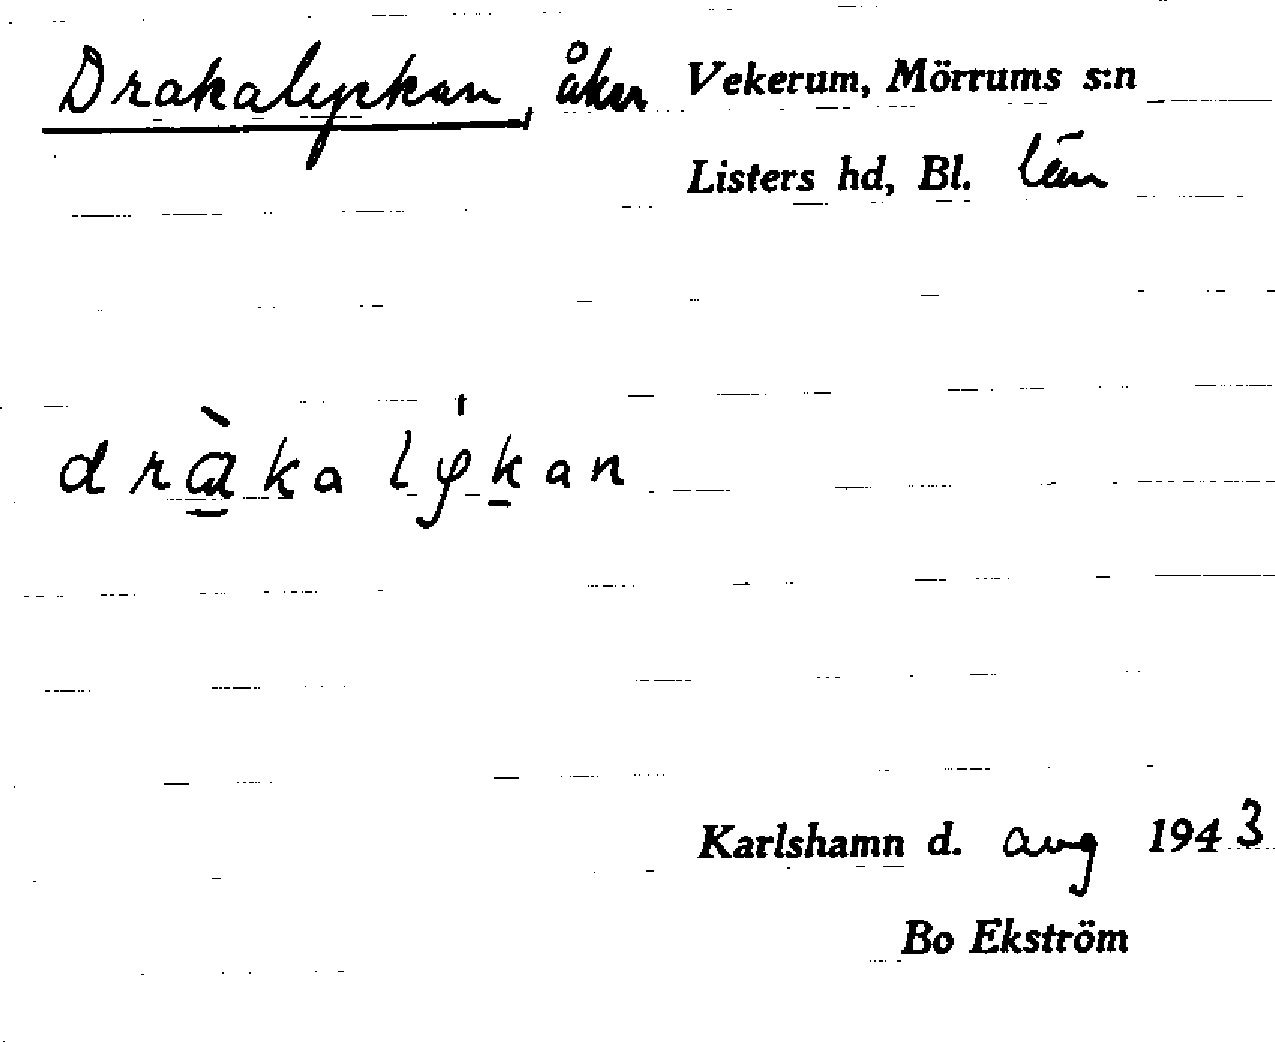 Drakalyckan, åker Vekerum, Mörrums s:n
Listers hd, Bl. län
dràkalýkan
Karlshamn d. aug 1943
Bo Ekström